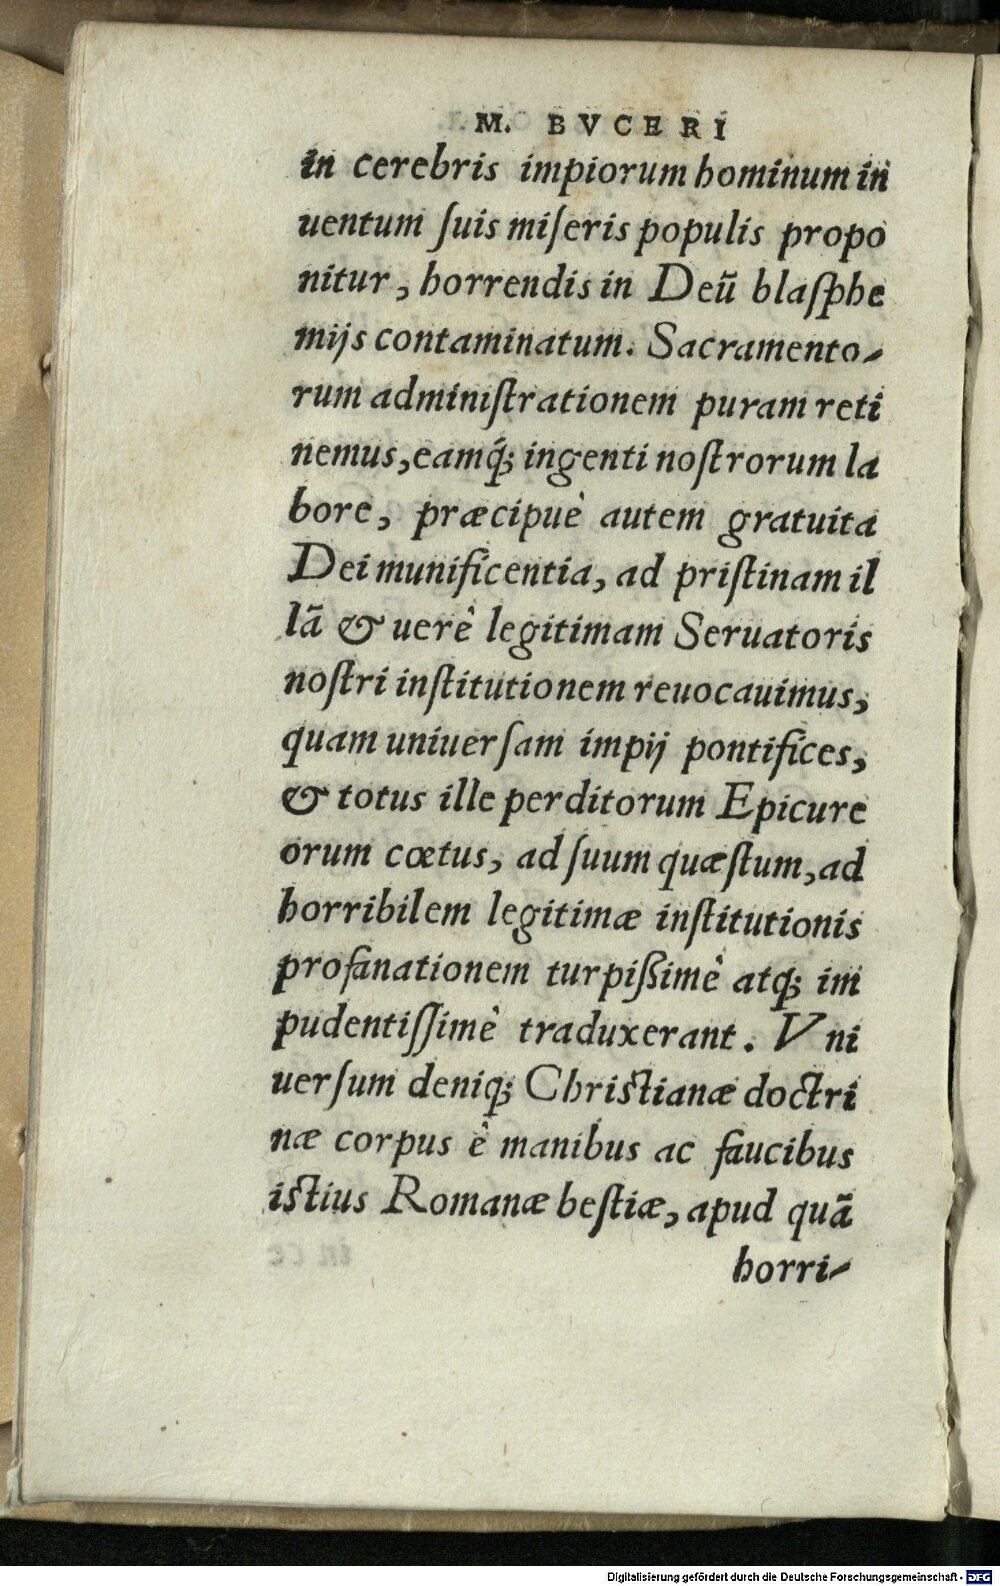 M. BVCERI
in cerebris impiorum hominum in
uentum ſuis miſeris populis propo
nitur, horrendis in Deũ blaſphe
mijs contaminatum. Sacramento-
rum adminiſtrationem puram reti
nemus, eamq́; ingenti noſtrorum la
bore, præcipuè autem gratuita
Dei munificentia, ad priſtinam il
lã & uerè legitimam Seruatoris
noſtri inſtitutionem reuocauimus,
quam uniuerſam impij pontifices,
& totus ille perditorum Epicure
orum cœtus, ad ſuum quæſtum, ad
horribilem legitimæ inſtitutionis
profanationem turpißimè atq; im
pudentiſſimè traduxerant. Vni
uerſum deniq; Christianæ doctri
næ corpus è manibus ac faucibus
istius Romanæ beſtiæ, apud quã
horri-
Digitalisierung gefördert durch die Deutsche Forschungsgemeinschaft - DFG